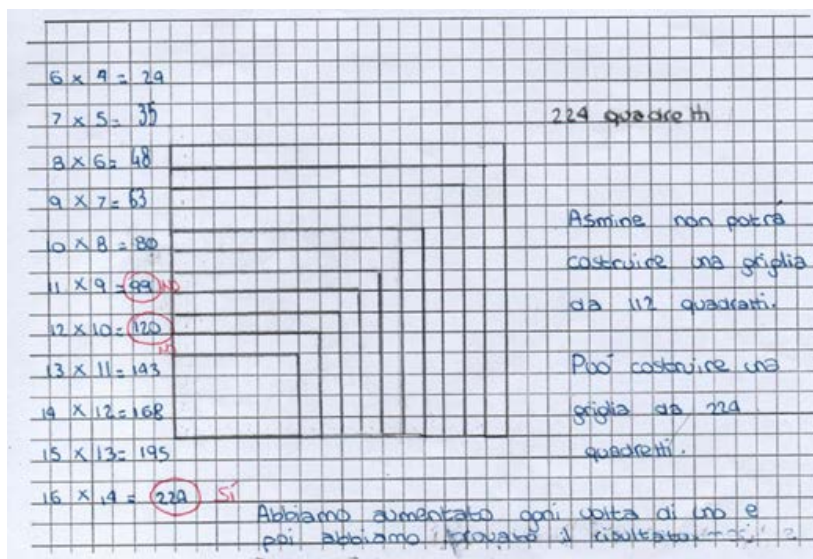 6 x 4 = 24
7 x 5 = 35
8 x 6 = 48
9 x 7 = 63
10 x 8 = 80
11 x 9 = 99 NO
12 x 10 = 120
NO
13 x 11 = 143
14 x 12 = 168
15 x 13 = 195
16 x 14 = 224 SÍ
224 quadretti
Asmine non potrá
costruire una griglia
da 112 quadratti.
Puó costruire una
griglia da 224
quadretti.
Abbiamo aumentato ogni volta di uno e
poi abbiamo provato il risultato